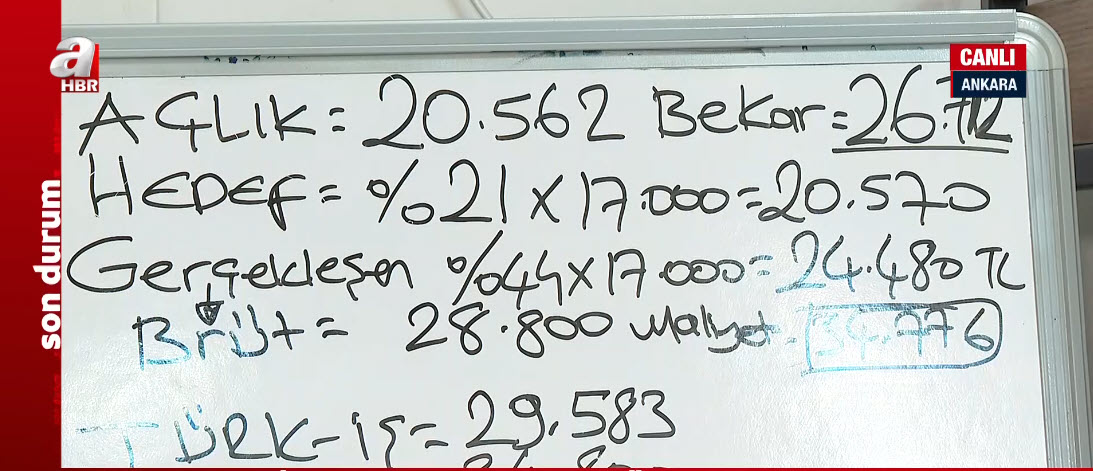 a
HBR
CANLI
ANKARA
son durum
AÇLIK = 20.562 Bekar = 26.712
HEDEF = %21 x 17.000 = 20.570
Gerçekleşen %44 x 17.000 = 24.480 TL
BRÜt = 28.800 Maliyet = 34.776
TÜRK-İŞ = 29.583